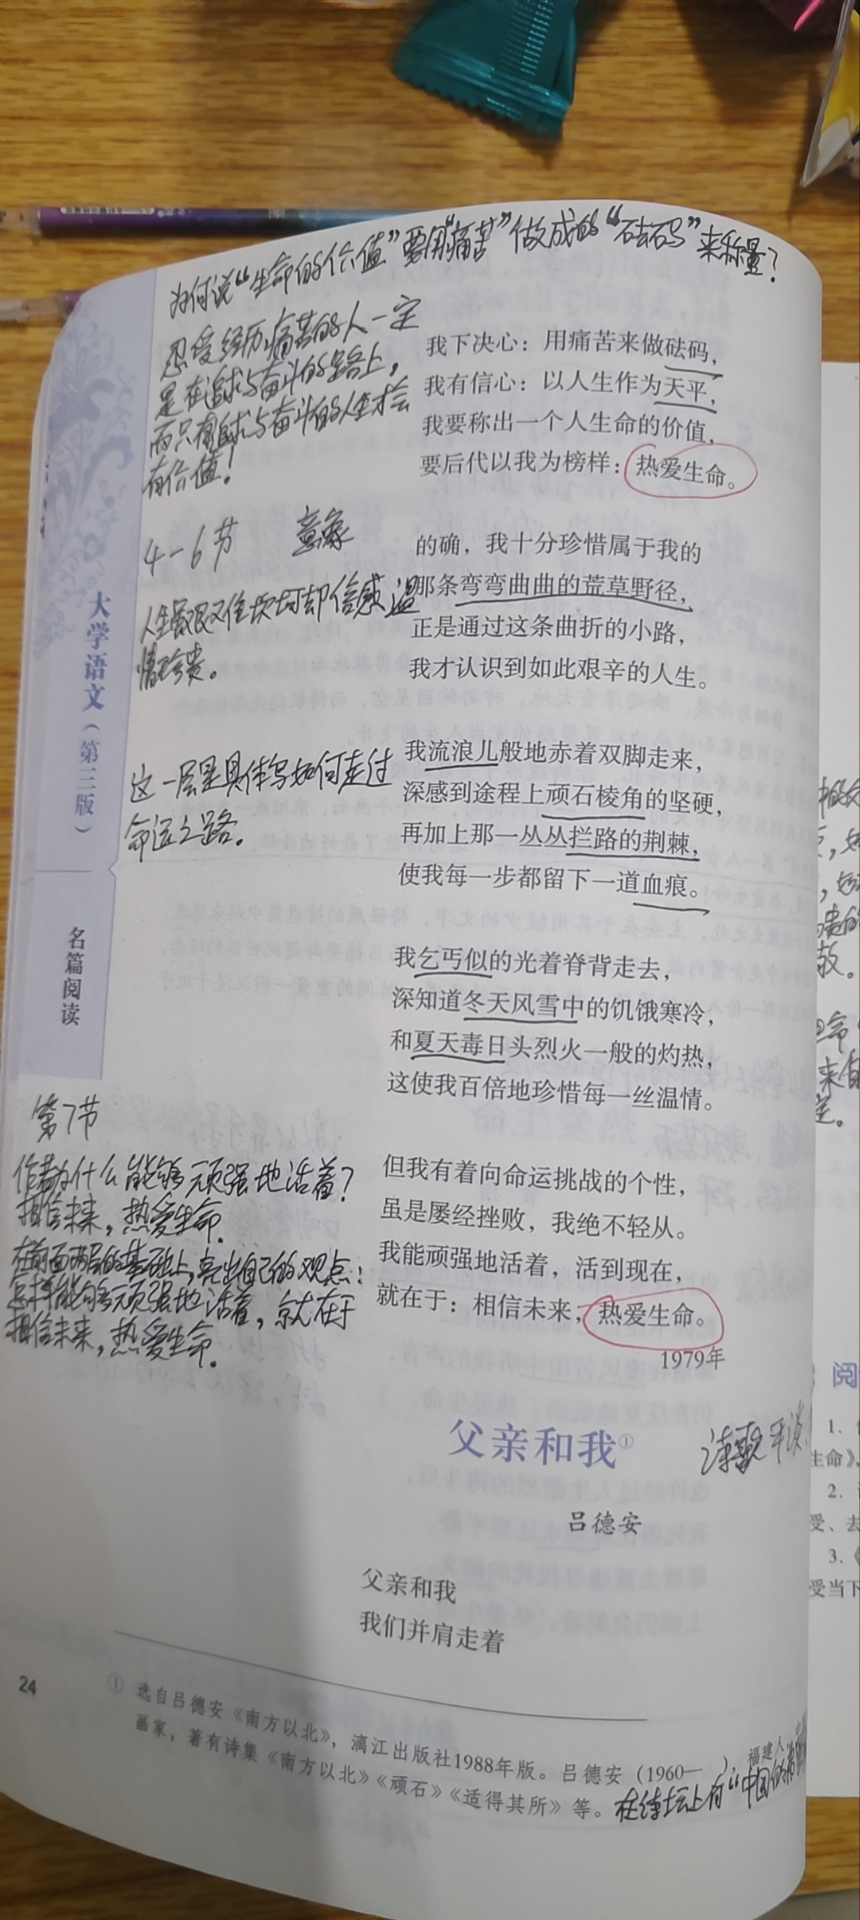 为何说“生命的价值”要用“痛苦”做成的“砝码”来称量？
忍受经历痛苦的人一定
是在追求与奋斗的路上，
而只有追求与奋斗的人生才会
有价值！
我下决心：用痛苦来做砝码，
我有信心：以人生作为天平，
我要称出一个人生命的价值，
要后代以我为榜样：热爱生命。
4-6节 意象
人生虽艰难坎坷却倍感温
情珍贵。
的确，我十分珍惜属于我的
那条弯弯曲曲的荒草野径，
正是通过这条曲折的小路，
我才认识到如此艰辛的人生。
大学语文（第三版）
这一层是具体写如何走过
命运之路。
我流浪儿般地赤着双脚走来，
深感到途程上顽石棱角的坚硬，
再加上那一丛丛拦路的荆棘，
使我每一步都留下一道血痕。
名篇阅读
我乞丐似的光着脊背走去，
深知道冬天风雪中的饥饿寒冷，
和夏天毒日头烈火一般的灼热，
这使我百倍地珍惜每一丝温情。
第7节
作者为什么能够顽强地活着？
相信未来，热爱生命.
在前面两层的基础上，亮出自己的观点：
怎样能够顽强地活着，就在于
相信未来，热爱生命.
但我有着向命运挑战的个性，
虽是屡经挫败，我绝不轻从。
我能顽强地活着，活到现在，
就在于：相信未来，热爱生命。
1979年
父亲和我①
诗歌平淡
吕德安
父亲和我
我们并肩走着
① 选自吕德安《南方以北》，漓江出版社1988年版。吕德安（1960— ），福建人，
画家，著有诗集《南方以北》《顽石》《适得其所》等。
在诗坛上有“中国的
24
阅
1.
生命》
2.
受、去
3.
受当下